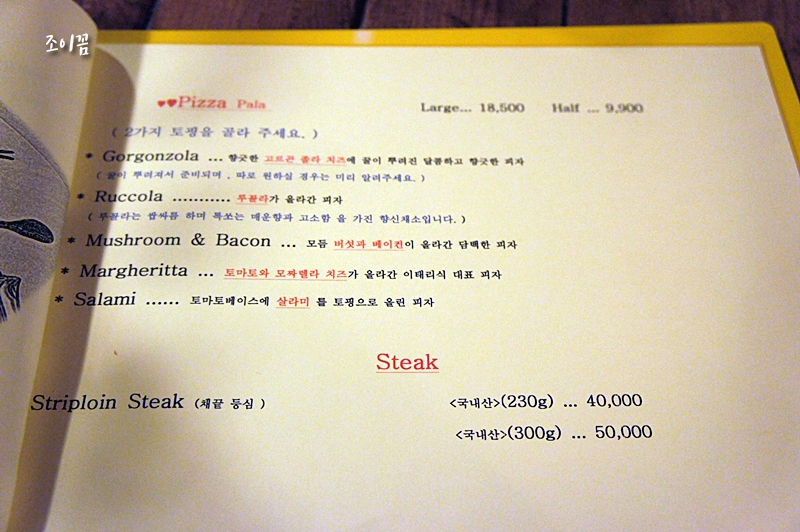 조이꼼
♥♥Pizza Pala Large... 18,500 Half ... 9,900
( 2가지 토핑을 골라 주세요. )
* Gorgonzola ...향긋한 고르곤 졸라 치즈에 꿀이 뿌려진 달콤하고 향긋한 피자
( 꿀이 뿌려져서 준비되며 , 따로 원하실 경우는 미리 알려주세요. )
* Ruccola ........... 루꼴라가 올라간 피자
( 루꼴라는 쌉싸름 하며 톡쏘는 매운향과 고소함 을 가진 향신채소입니다. )
* Mushroom & Bacon ... 모듬 버섯과 베이컨이 올라간 담백한 피자
* Margheritta ... 토마토와 모짜렐라 치즈가 올라간 이태리식 대표 피자
* Salami ...... 토마토베이스에 살라미 를 토핑으로 올린 피자
Steak
Striploin Steak (채끝 등심 ) <국내산>(230g) ... 40,000
<국내산>(300g) ... 50,000